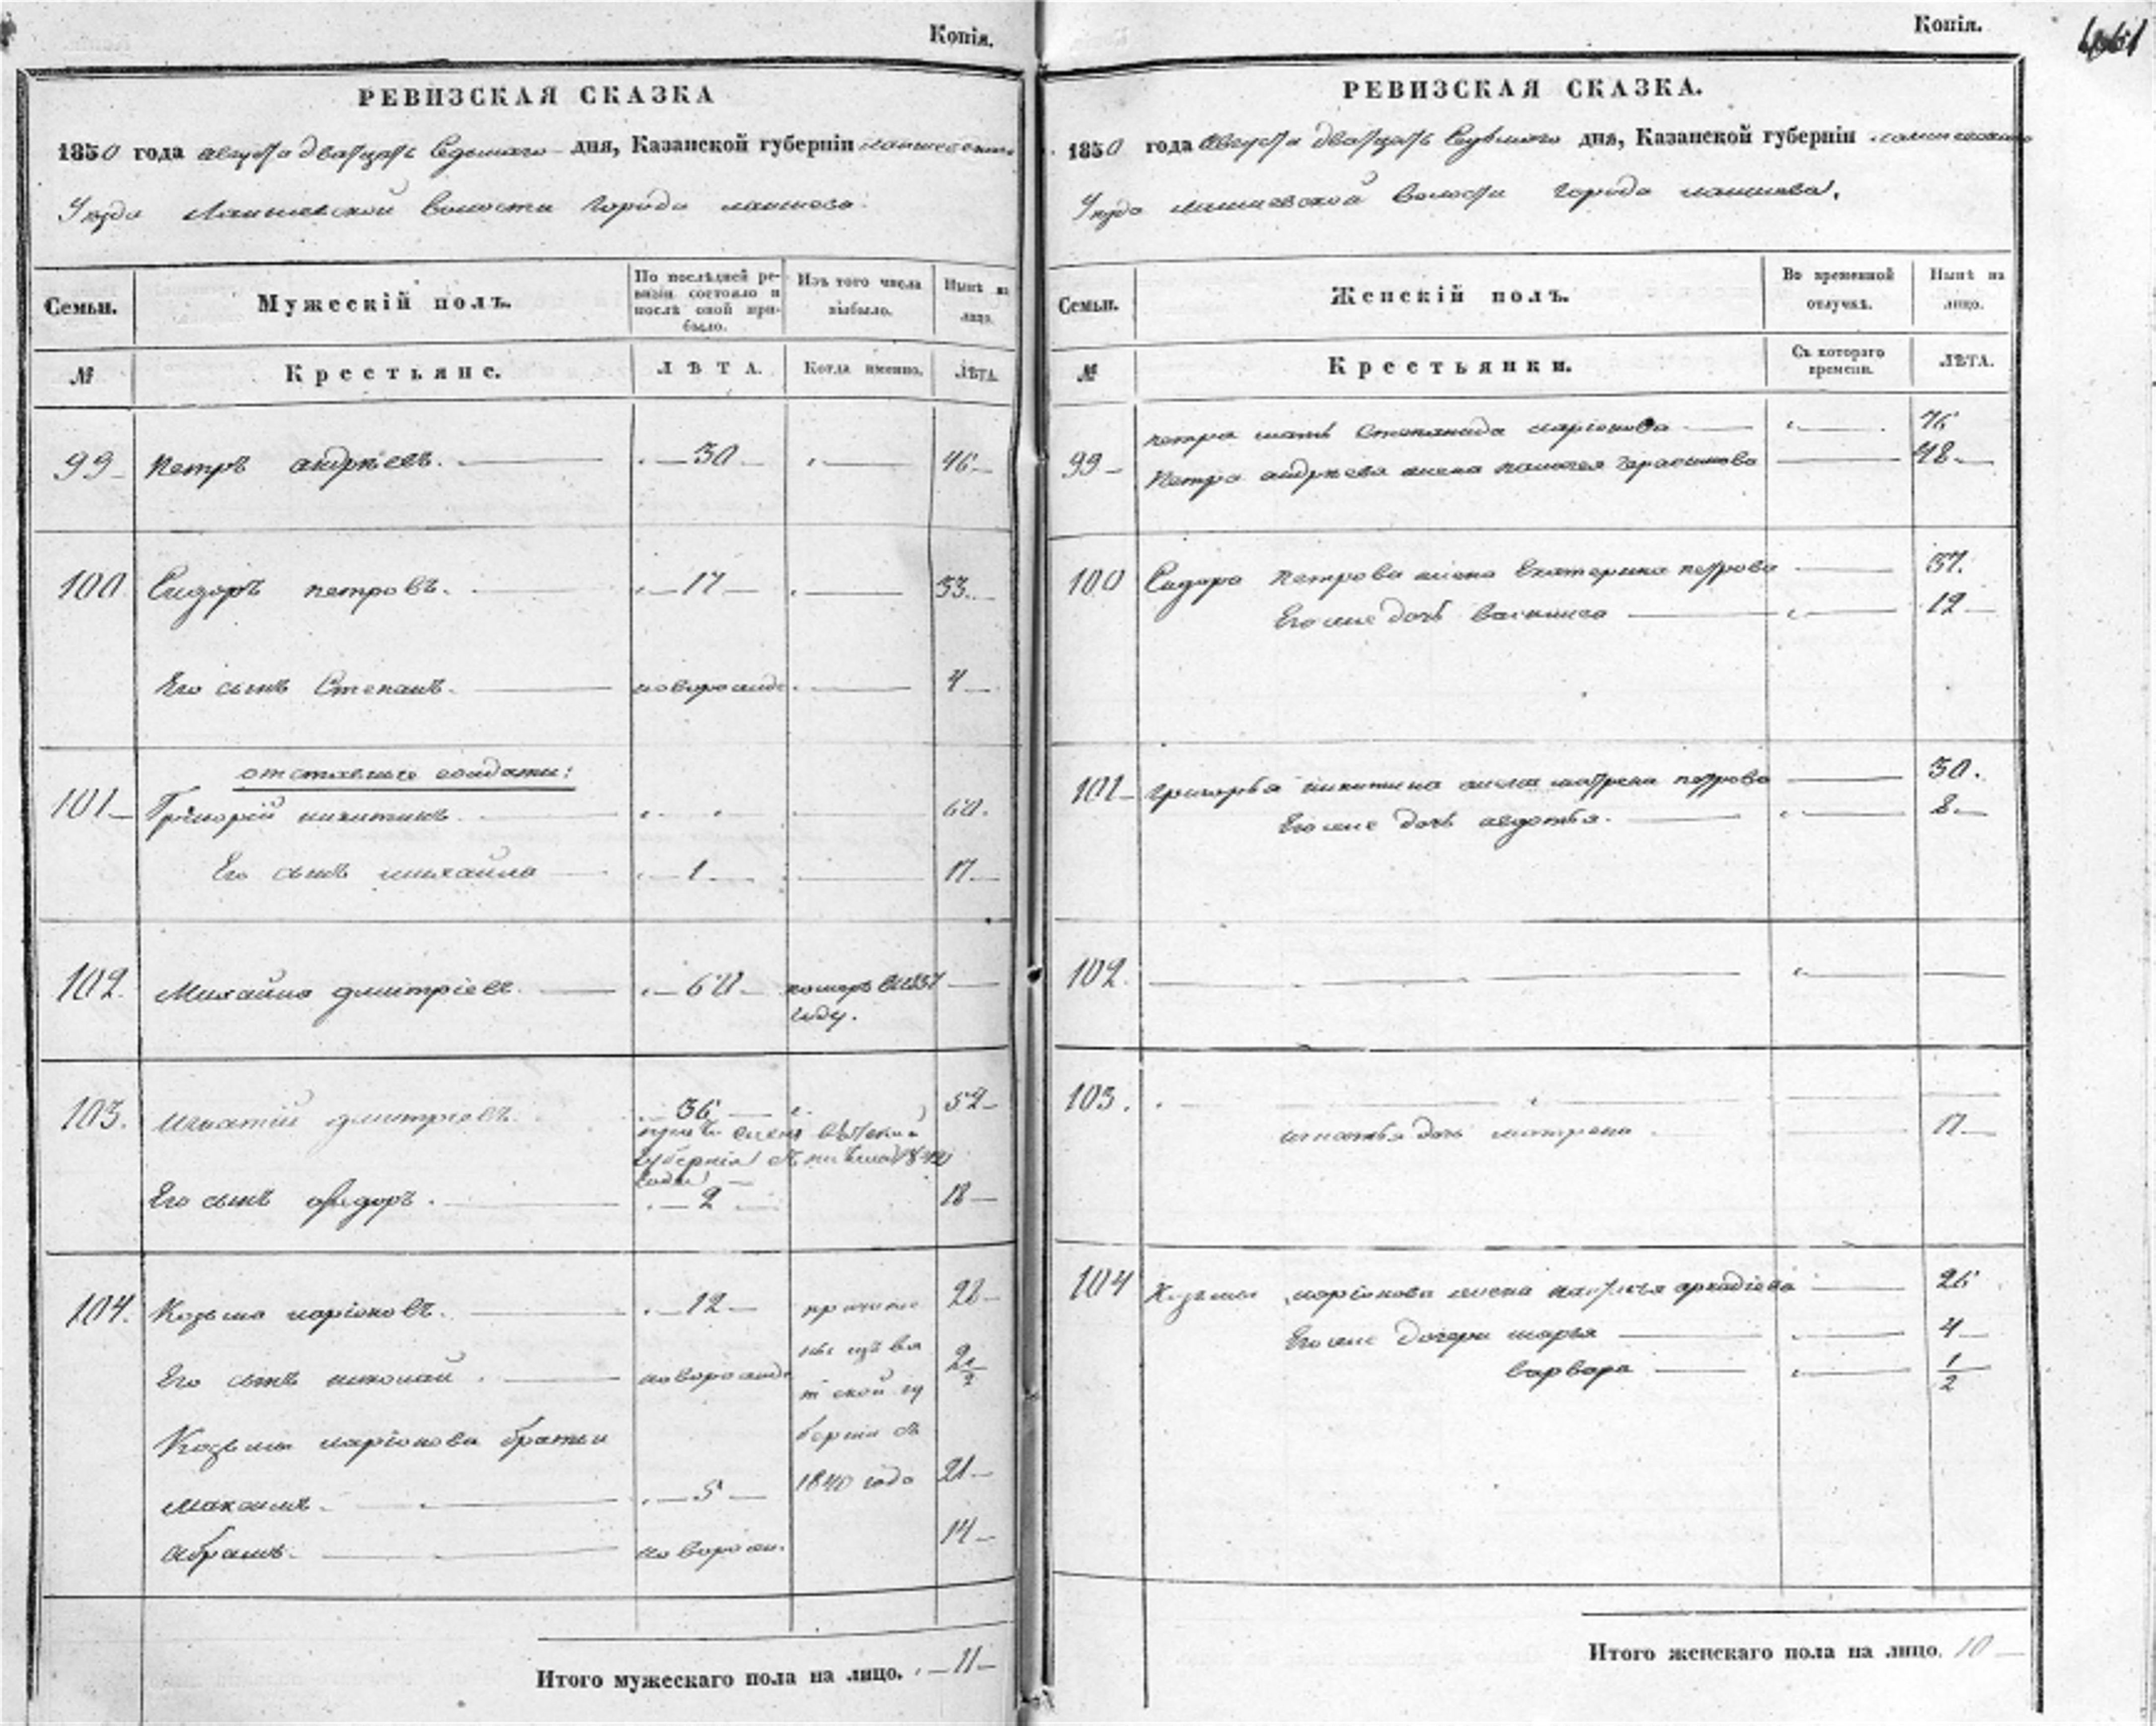 Копія.
РЕВИЗСКАЯ СКАЗКА
1850 года августа двадцать седьмаго дня, Казанской губерніи лаишевскаго
Уезда Лаишевской волости города лаишева.
Семьи.
Мужескій полъ.
По послѣдней ре-
визіи состояло и
послѣ оной при-
было.
Изъ того числа
выбыло.
Нынѣ на
лицо.
№
Крестьяне.
ЛѢТА.
Когда именно.
ЛѢТА.
99 Петръ андрѣевъ. 30 46
100 Сидоръ петровъ. 17 33
Его сынъ Степанъ. новорожд. 4
отставные солдаты:
101 Григорій никитинъ 60.
Его сынъ михайла 1 17
102. Михайла дмитріевъ. 60 померъ въ 1837
году.
103. игнатій дмитріевъ. 36 52
губерніи
года
Его сынъ ѳедоръ. 2 18
104. Козьма ларіоновъ. 12 28
Его сынъ николай. новорожд 2 1/2
ны изъ вя
тской гу
Козьмы ларіонова братьи
берніи съ
1840 года
максимъ. 5 21
абрамъ. новорож. 14
Итого мужескаго пола на лицо. 11
Копія.
РЕВИЗСКАЯ СКАЗКА.
1850 года Августа двадцать Седьмого дня, Казанской губерніи лаишевскаго
Уезда лаишевской волости города лаишева.
Семьи.
Женскій полъ.
Во временной
отлучкѣ.
Нынѣ на
лицо.
№
Крестьянки.
Съ котораго
времени.
ЛѢТА.
петра мать Степанида ларіонова 76
99 Петра андрѣева жена пелагея гарасимова 48
100 Сидора петрова жена Екатерина петрова 37.
Его же дочь василиса 12
101 григорья никитина жена матрена петрова 50.
Его же дочь авдотья. 8
102.
103.
игнатья дочь матрена 17
104 Козьмы ларіонова жена аркадіева 26
Его же дочери марья 4
варвара 1/2
Итого женскаго пола на лицо. 10